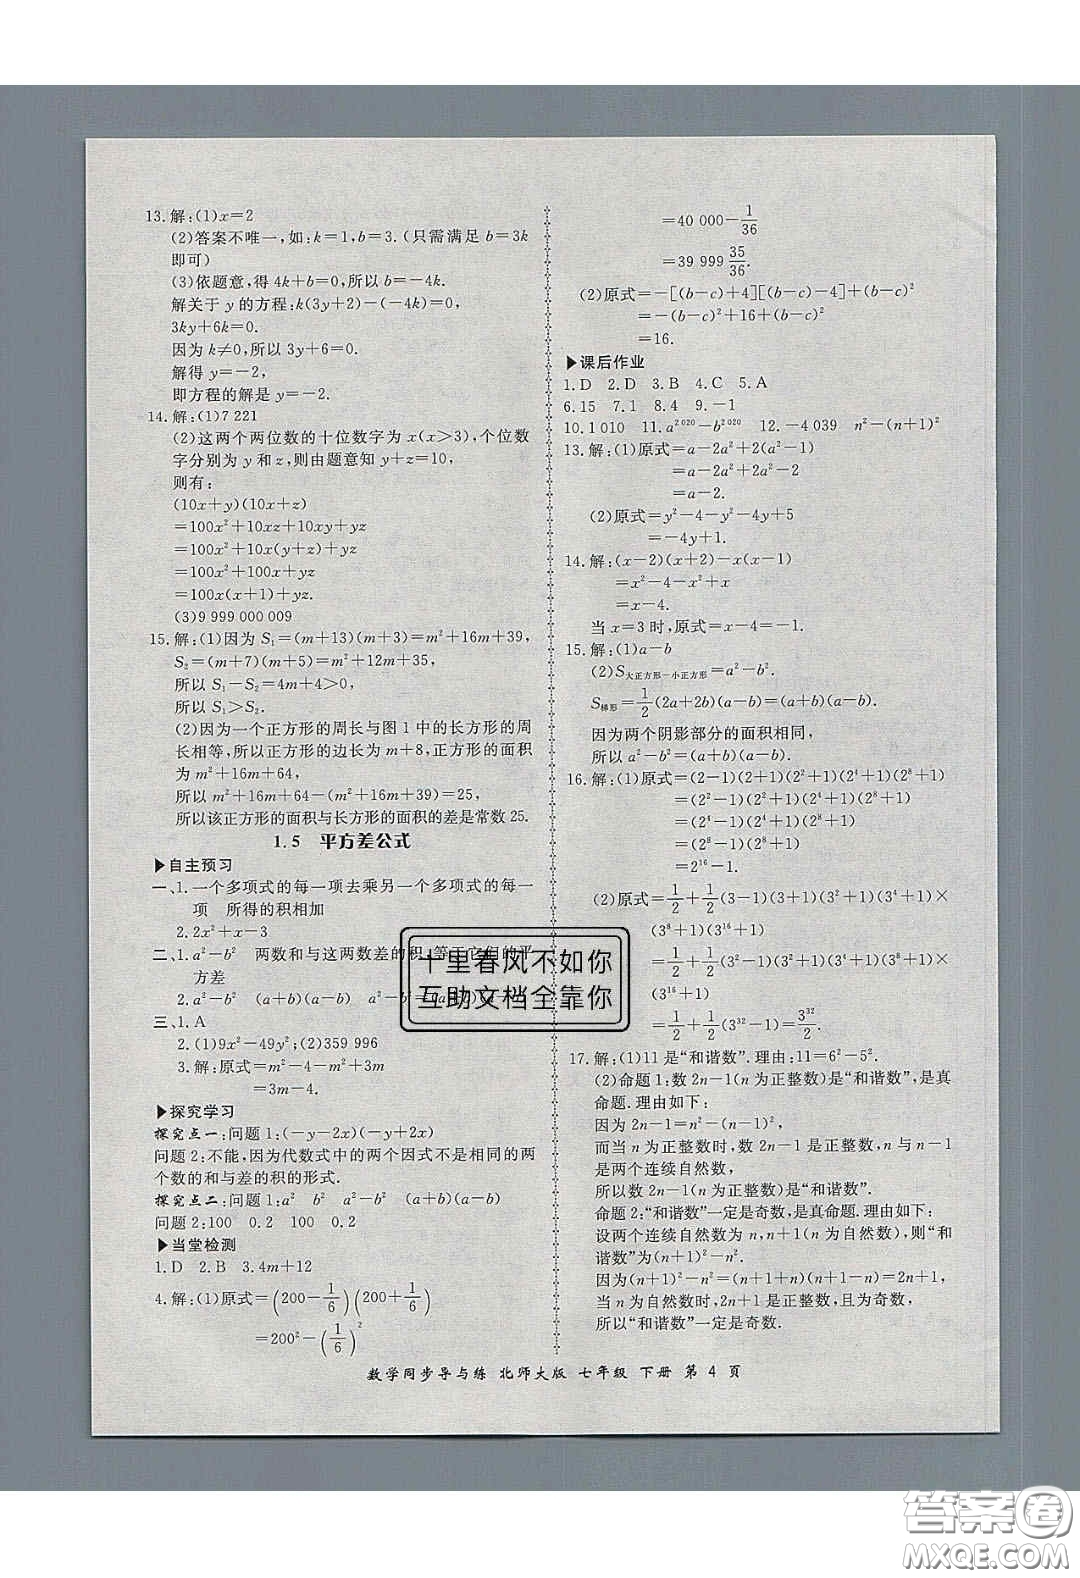 13.解:(1)x=2
(2)答案不唯一,如:k=1,b=3.(只需满足 b=3k
即可)
(3)依题意,得 4k+b=0,所以 b=-4k.
解关于 y 的方程:k(3y+2)-(-4k)=0,
3ky+6k=0.
因为 k≠0,所以 3y+6=0.
解得 y=-2,
即方程的解是 y=-2.
14.解:(1)7 221
(2)这两个两位数的十位数字为 x(x>3),个位数
字分别为 y 和 z,则由题意知 y+z=10,
则有:
(10x+y)(10x+z)
=100x²+10xz+10xy+yz
=100x²+10x(y+z)+yz
=100x²+100x+yz
=100x(x+1)+yz.
(3)9 999 000 009
15.解:(1)因为 S₁=(m+13)(m+3)=m²+16m+39,
S₂=(m+7)(m+5)=m²+12m+35,
所以 S₁-S₂=4m+4>0,
所以 S₁>S₂.
(2)因为一个正方形的周长与图 1 中的长方形的周
长相等,所以正方形的边长为 m+8,正方形的面积
为 m²+16m+64,
所以 m²+16m+64-(m²+16m+39)=25,
所以该正方形的面积与长方形的面积的差是常数 25.
1.5 平方差公式
▶自主预习
一、1.一个多项式的每一项去乘另一个多项式的每一
项 所得的积相加
2.2x²+x-3
二、1.a²-b² 两数和与这两数差的积,等于它们的平
方差
2.a²-b² (a+b)(a-b) a²-b²=(a+b)(a-b)
三、1.A
2.(1)9x²-49y²;(2)359 996
3.解:原式=m²-4-m²+3m
=3m-4.
▶探究学习
探究点一:问题 1:(-y-2x)(-y+2x)
问题 2:不能,因为代数式中的两个因式不是相同的两
个数的和与差的积的形式.
探究点二:问题 1:a² b² a²-b² (a+b)(a-b)
问题 2:100 0.2 100 0.2
▶当堂检测
1.D 2.B 3.4m+12
4.解:(1)原式=(200-1/6)(200+1/6)
=200²-(1/6)²
=40 000-1/36
=39 999 35/36.
(2)原式=-[(b-c)+4][(b-c)-4]+(b-c)²
=-(b-c)²+16+(b-c)²
=16.
▶课后作业
1.D 2.D 3.B 4.C 5.A
6.15 7.1 8.4 9.-1
10.1 010 11.a²⁰²⁰-b²⁰²⁰ 12.-4 039 n²-(n+1)²
13.解:(1)原式=a-2a²+2(a²-1)
=a-2a²+2a²-2
=a-2.
(2)原式=y²-4-y²-4y+5
=-4y+1.
14.解:(x-2)(x+2)-x(x-1)
=x²-4-x²+x
=x-4.
当 x=3 时,原式=-1.
15.解:(1)a-b
(2)S大正方形-小正方形=a²-b².
S梯形=1/2(2a+2b)(a-b)=(a+b)(a-b).
因为两个阴影部分的面积相同,
所以 a²-b²=(a+b)(a-b).
16.解:(1)原式=(2-1)(2+1)(2²+1)(2⁴+1)(2⁸+1)
=(2²-1)(2²+1)(2⁴+1)(2⁸+1)
=(2⁴-1)(2⁴+1)(2⁸+1)
=(2⁸-1)(2⁸+1)
=2¹⁶-1.
(2)原式=1/2+1/2(3-1)(3+1)(3²+1)(3⁴+1)×
(3⁸+1)(3¹⁶+1)
=1/2+1/2(3²-1)(3²+1)(3⁴+1)(3⁸+1)×
(3¹⁶+1)
=1/2+1/2(3³²-1)=3³²/2.
17.解:(1)11 是“和谐数”.理由:11=6²-5².
(2)命题 1:数 2n-1(n 为正整数)是“和谐数”,是真
命题.理由如下:
因为 2n-1=n²-(n-1)²,
而当 n 为正整数时,数 2n-1 是正整数,n 与 n-1
是两个连续自然数,
所以数 2n-1(n 为正整数)是“和谐数”.
命题 2:“和谐数”一定是奇数,是真命题.理由如下:
设两个连续自然数为 n,n+1(n 为自然数),则“和
谐数”为(n+1)²-n².
因为(n+1)²-n²=(n+1+n)(n+1-n)=2n+1,
当 n 为自然数时,2n+1 是正整数,且为奇数,
所以“和谐数”一定是奇数.
十里春风不如你
互助文档全靠你
数学同步导与练 北师大版 七年级 下册 第 4 页
答案圈
MXQE.COM